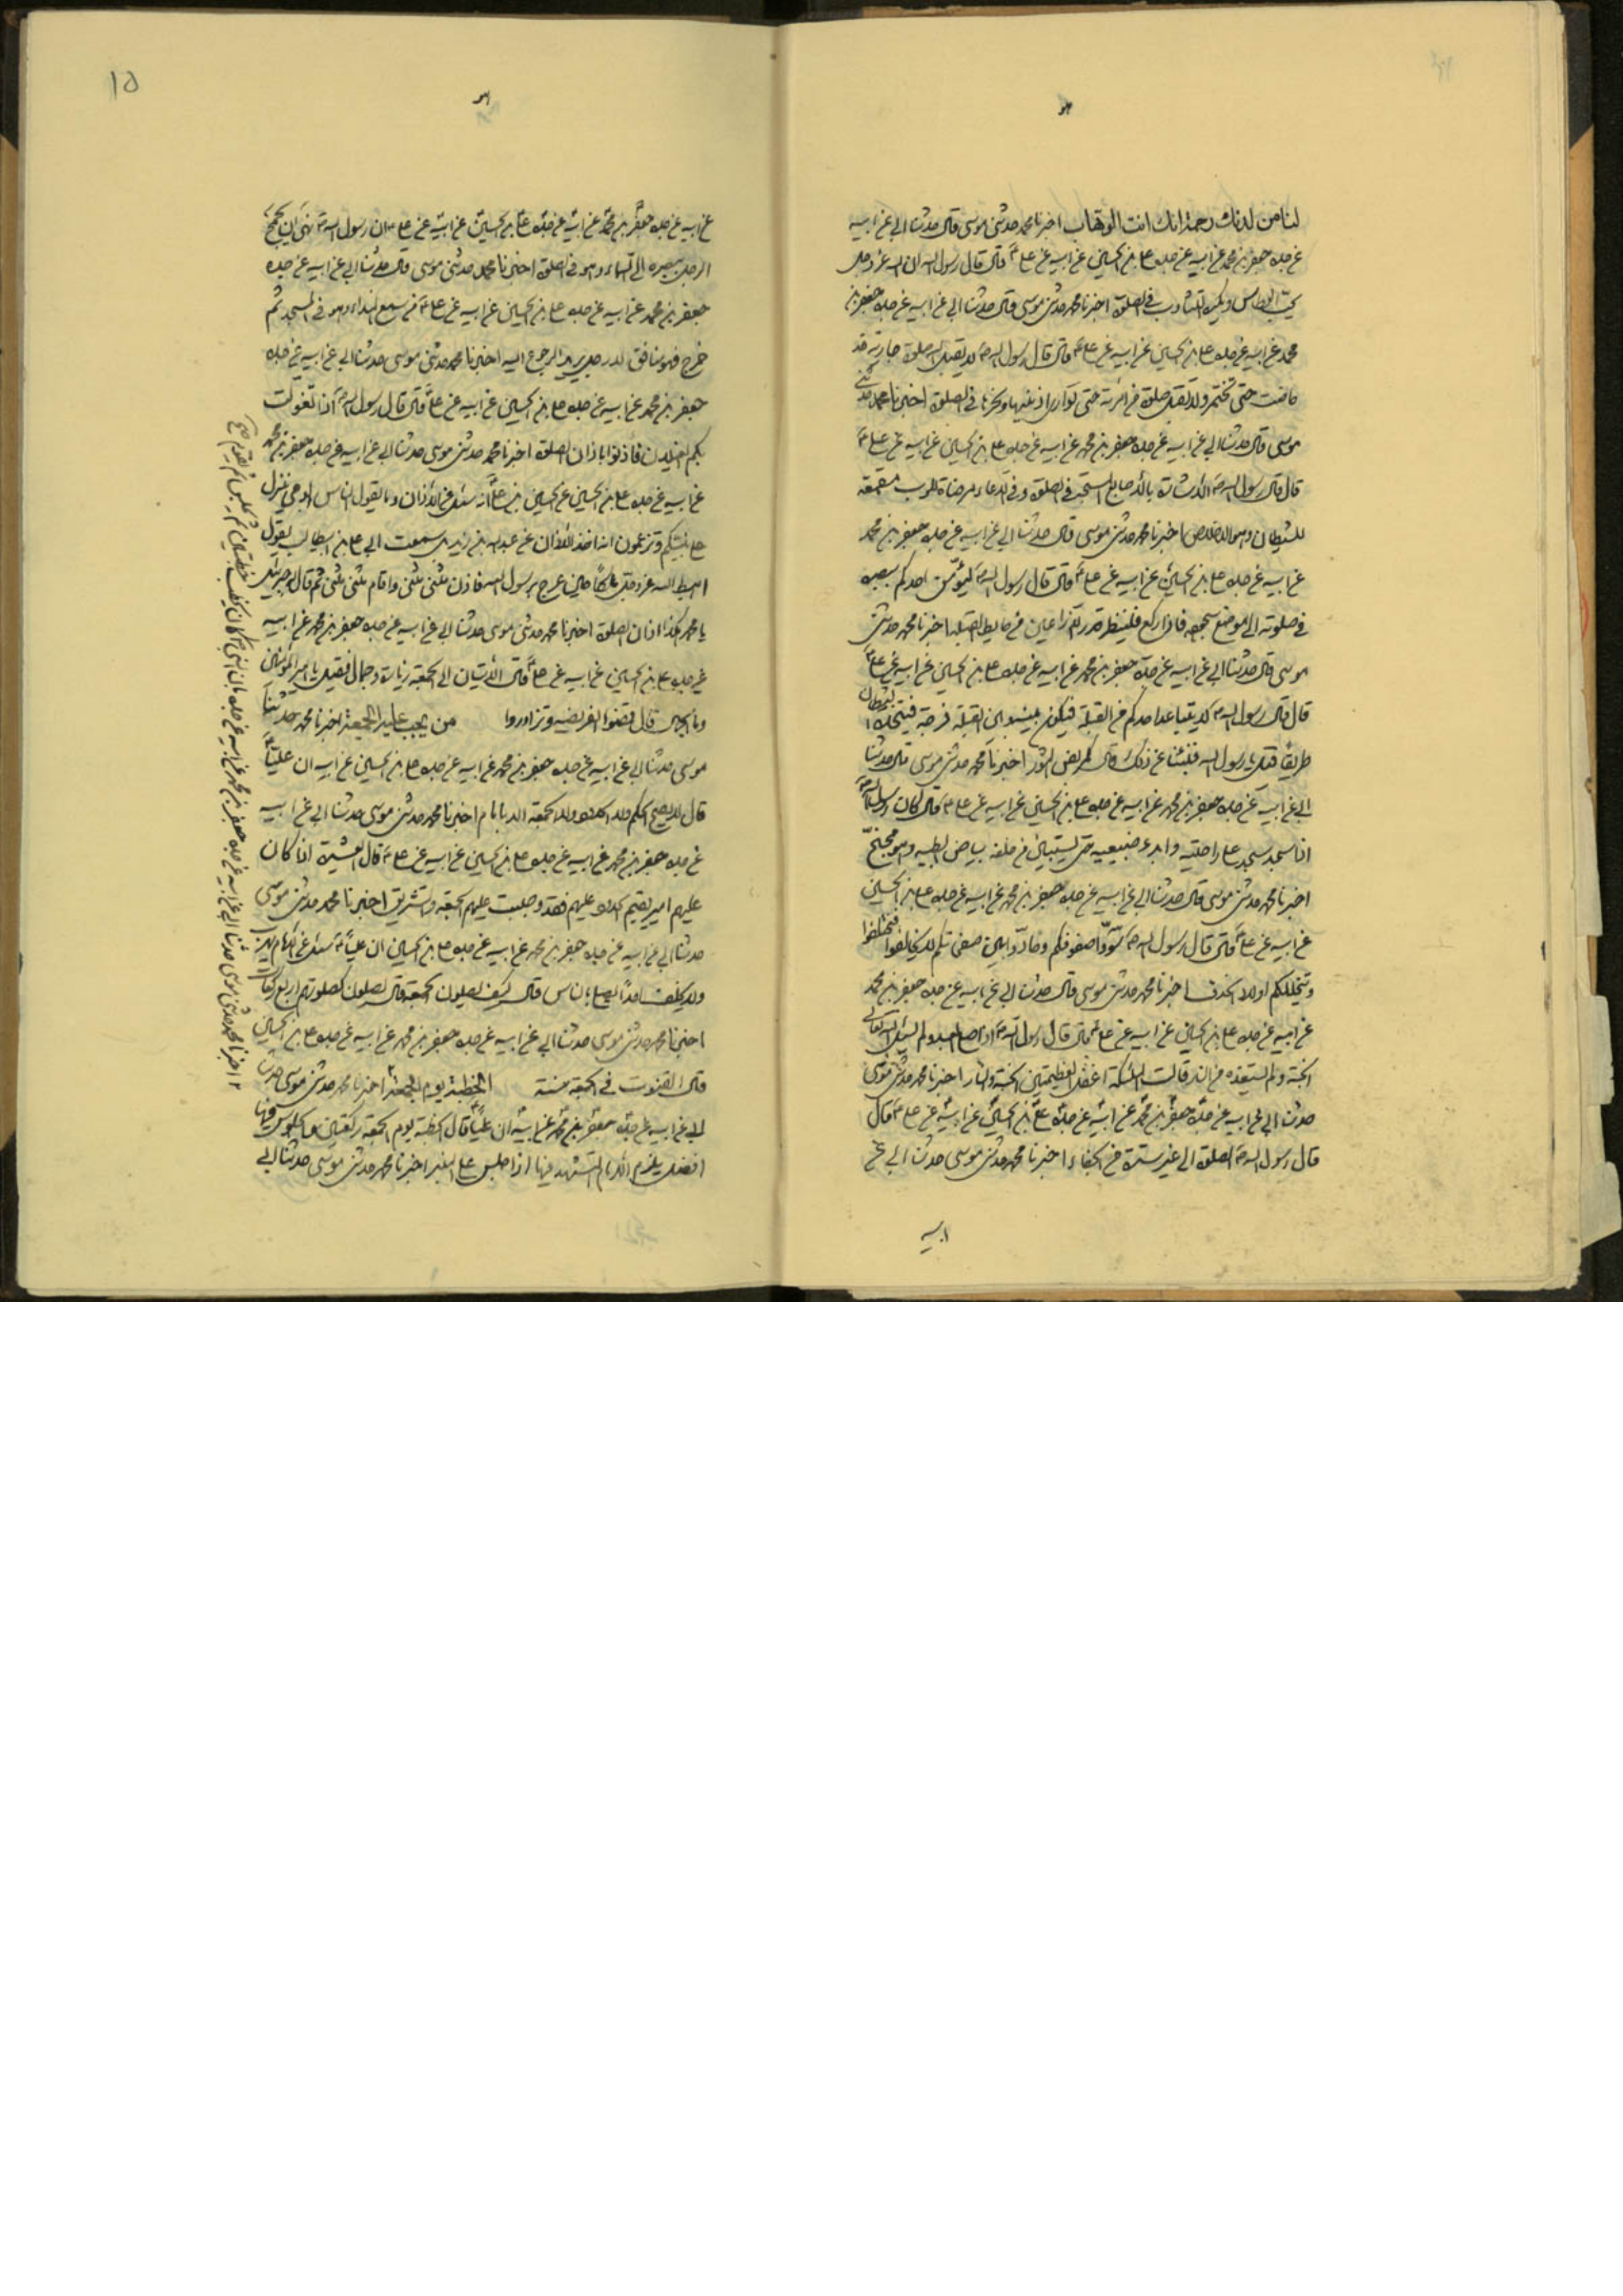 لنا من لدنك رحمة انك انت الوهاب اخبرنا محمد حدثنى موسى قال حدثنا ابى عن ابيه
عن جده جعفر بن محمد عن ابيه عن جده على بن الحسين عن ابيه عن على ع قال قال رسول الله ان الله عز وجل
يحب العطاس ويكره التثاوب فى الصلوة اخبرنا محمد حدثنى موسى قال حدثنا ابى عن ابيه عن جده جعفر بن
محمد عن ابيه عن جده على بن الحسين عن ابيه عن على ع قال قال رسول الله ص لا يقبل الله صلوة جارية قد
حاضت حتى تختمر ولا تقبل صلوة من امرئة حتى توارى اذنيها ونحرها فى الصلوة اخبرنا محمد حدثنى
موسى قال حدثنا ابى عن ابيه عن جده جعفر بن محمد عن ابيه عن جده على بن الحسين عن ابيه عن على ع
قال قال رسول الله ص الاشارة بالاصابع المستحبة فى الصلوة وفى الدعاء مرضاة للرب مقمعة
للشيطان وهو الاخلاص اخبرنا محمد حدثنى موسى قال حدثنا ابى عن ابيه عن جده جعفر بن محمد
عن ابيه عن جده على بن الحسين عن ابيه عن على ع قال قال رسول الله ص احدكم ببصره
فى صلوته الى موضع سجوده فاذا ركع فلينظر قدر ذراعين من حايط القبلة اخبرنا محمد حدثنى
موسى قال حدثنا ابى عن ابيه عن جده جعفر بن محمد عن ابيه عن جده على بن الحسين عن ابيه عن على ع
قال قال رسول الله ص لا يتباعد احدكم من القبلة فيكون بينه وبين القبلة فرجة فيتخذه الشيطان
طريقا قيل يا رسول الله فنبئنا عن ذلك قال كمربض الثور اخبرنا محمد حدثنى موسى قال حدثنا
ابى عن ابيه عن جده جعفر بن محمد عن ابيه عن جده على بن الحسين عن ابيه عن على ع قال كان رسول الله ص
اذا سجد سجد على راحتيه وابدء ضبعيه حتى يستبين من خلفه بياض ابطيه وهو مجنح
اخبرنا محمد حدثنى موسى قال حدثنا ابى عن ابيه عن جده جعفر بن محمد عن ابيه عن جده على بن الحسين
عن ابيه عن على ع قال قال رسول الله ص سووا صفوفكم وحاذوا بين مناكبكم لا تخالفوا فتختلفوا
ويتخللكم اولاد الحذف اخبرنا محمد حدثنى موسى قال حدثنا ابى عن ابيه عن جده جعفر بن محمد
عن ابيه عن جده على بن الحسين عن ابيه عن على ع قال قال رسول الله ص اذا صلى العبد ولم يسئل الله تعالى
الجنة ولم يستعذه من النار قالت الملئكة اغفل العظيمتين الجنة والنار اخبرنا محمد حدثنى موسى
حدثنا ابى عن ابيه عن جده جعفر بن محمد عن ابيه عن جده على بن الحسين عن ابيه عن على ع قال
قال رسول الله ص الصلوة الى غير سترة من الجفاء اخبرنا محمد حدثنى موسى حدثنا ابى عن
ابيه
١٥
عن ابيه عن جده جعفر بن محمد عن ابيه عن جده على بن الحسين عن ابيه عن على ع ان رسول الله ص نهى ان
الرجل ببصره الى السماء وهو فى الصلوة اخبرنا محمد حدثنى موسى قال حدثنا ابى عن ابيه عن جده
جعفر بن محمد عن ابيه عن جده على بن الحسين عن ابيه عن على ع من سمع النداء وهو فى المسجد ثم
خرج فهو منافق الا رجل يريد الرجوع اليه اخبرنا محمد حدثنى موسى حدثنا ابى عن ابيه عن جده
جعفر بن محمد عن ابيه عن جده على بن الحسين عن ابيه عن على ع قال قال رسول الله ص اذا تغولت
بكم الغيلان فأذنوا باذان الصلوة اخبرنا محمد حدثنى موسى حدثنا ابى عن ابيه عن جده جعفر بن محمد
عن ابيه عن جده على بن الحسين عن الحسين بن على ع انه سئل عن الاذان وما يقول الناس الوحى ينزل
على نبيكم وتزعمون انه اخذ الاذان عن عبد الله بن زيد بل سمعت ابى على بن ابى طالب يقول
اهبط الله عز وجل ملكا حين عرج برسول الله فاذن مثنى مثنى واقام مثنى مثنى ثم قال له جبرئيل
يا محمد هكذا اذان الصلوة اخبرنا محمد حدثنى موسى حدثنا ابى عن ابيه عن جده جعفر بن محمد عن ابيه
عن جده على بن الحسين عن ابيه عن على ع قال الاتيان الى الجمعة زيارة وجمال فقيل يا امير المؤمنين
وما الجمال قال قضوا الفريضة وتزاوروا من يجب عليه الجمعة اخبرنا محمد حدثنى
موسى حدثنا ابى عن ابيه عن جده جعفر بن محمد عن ابيه عن جده على بن الحسين عن ابيه ان عليا ع
قال لا يصح الحكم ولا الحدود ولا الجمعة الا بامام اخبرنا محمد حدثنى موسى حدثنا ابى عن ابيه
عن جده جعفر بن محمد عن ابيه عن جده على بن الحسين عن ابيه عن على ع قال العشيرة اذا كان
عليهم امير يقيم الحدود عليهم فقد وجبت عليهم الجمعة والتشريق اخبرنا محمد حدثنى موسى
حدثنا ابى عن ابيه عن جده جعفر بن محمد عن ابيه عن جده على بن الحسين ان عليا ع سئل عن الامام يهرب
ولا يخلف احدا يصلى بالناس قال كيف يصلون الجمعة قال يصلون كصلوتهم اربع ركعات
اخبرنا محمد حدثنى موسى حدثنا ابى عن ابيه عن جده جعفر بن محمد عن ابيه عن جده على بن الحسين
قال القنوت فى الجمعة سنة الخطبة يوم الجمعة اخبرنا محمد حدثنى موسى حدثنا
ابى عن ابيه عن جده جعفر بن محمد عن ابيه ان عليا ع قال الخطبة يوم الجمعة ركعتين
اذا جلس على المنبر اخبرنا محمد حدثنى موسى حدثنا ابى
اخبرنا محمد حدثنى موسى حدثنا ابى عن ابيه عن جده جعفر بن محمد عن ابيه عن جده ان النبى ص كان يخطب خطبتين ثم يجلس ثم يقوم